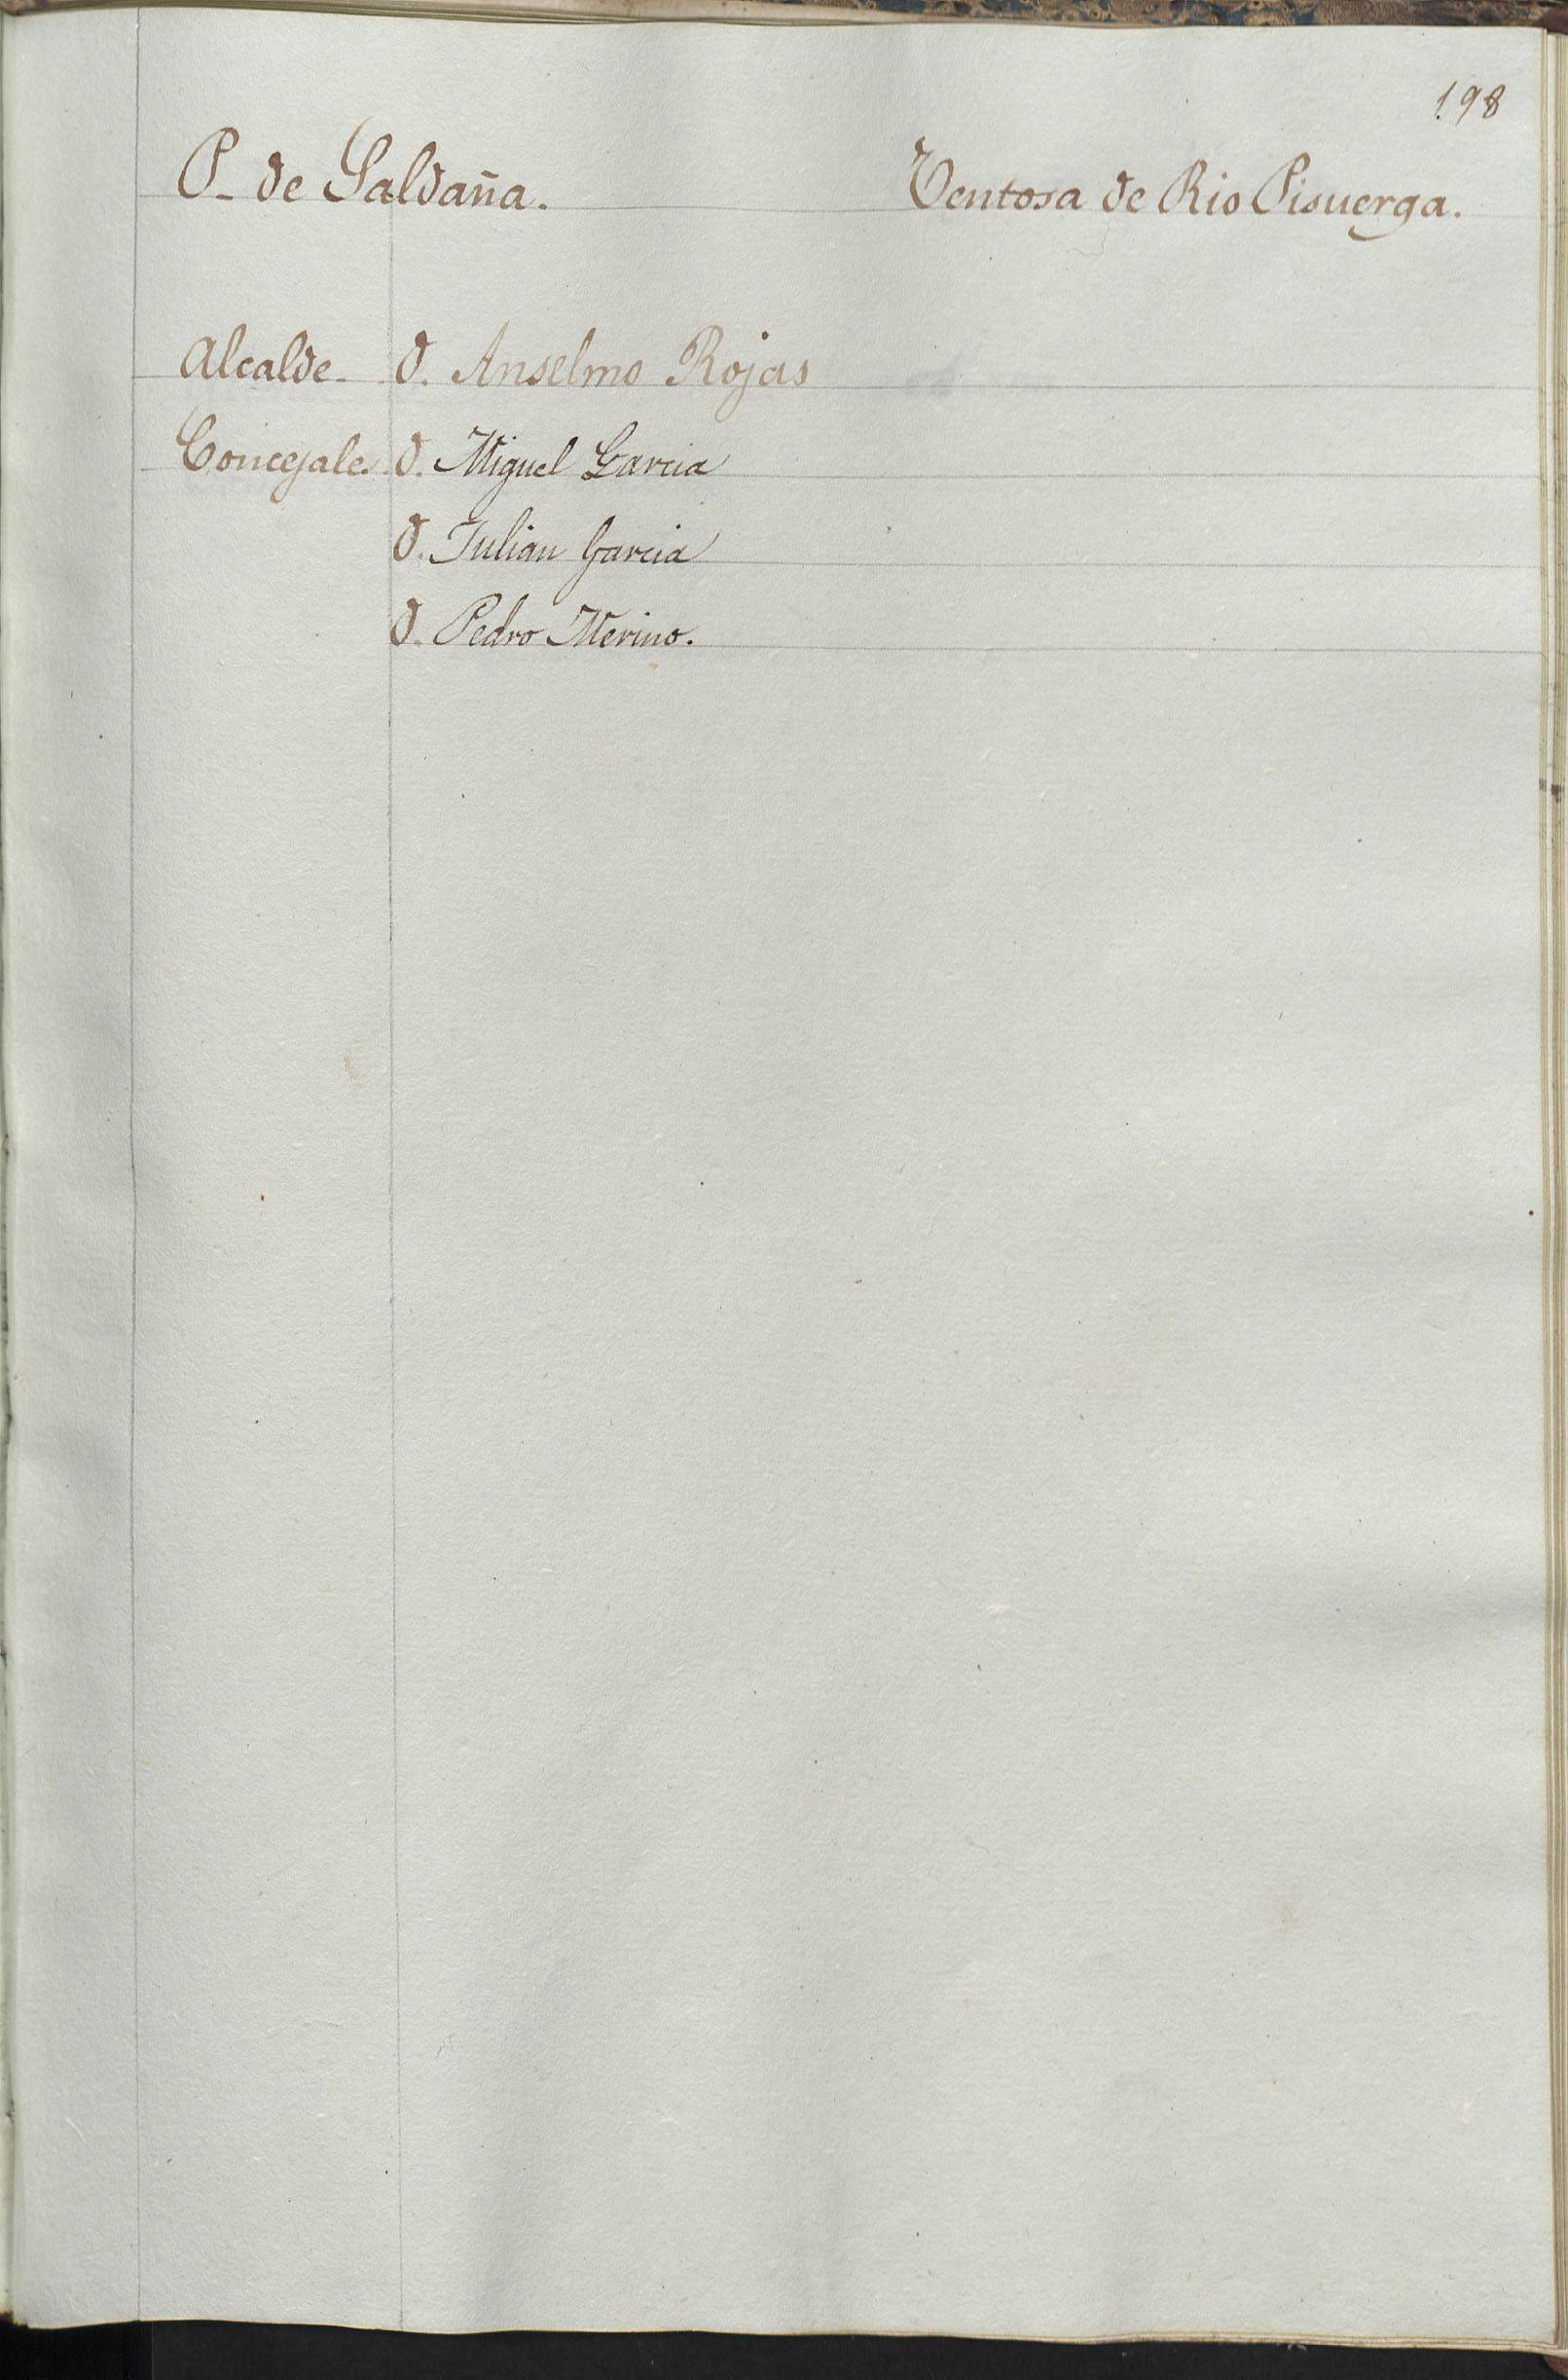 198
P. de Saldaña. Ventosa de Rio Pisuerga.
Alcalde. D. Anselmo Rojas
Concejales. D. Miguel Garcia
D. Julian Garcia
D. Pedro Merino.